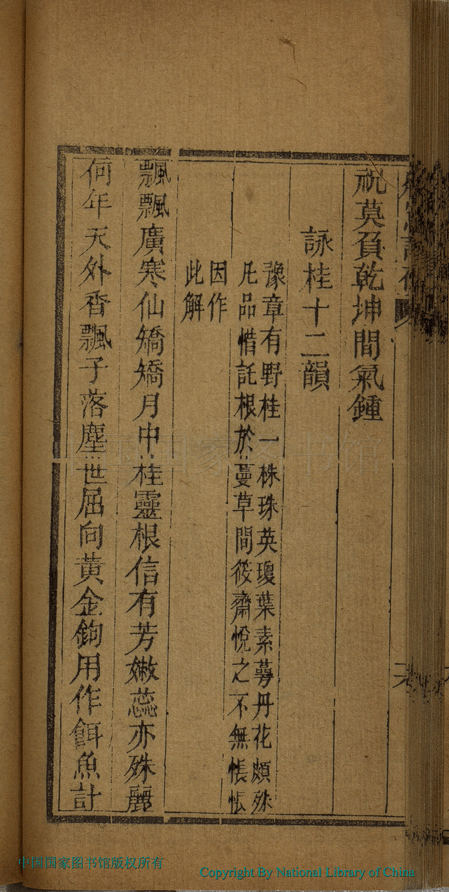 祝莫負乾坤間氣鍾
詠桂十二韻
豫章有野桂一株珠英瓊葉素萼丹花頗殊
凡品惜託根於蔓草間筱齋悅之不無悵悵
因作
此解
飄飄廣寒仙矯矯月中桂靈根信有芳嫩蕊亦殊麗
何年天外香飄子落塵世屈向黃金鉤用作餌魚計
中国国家图书馆版权所有
Copyright By National Library of China